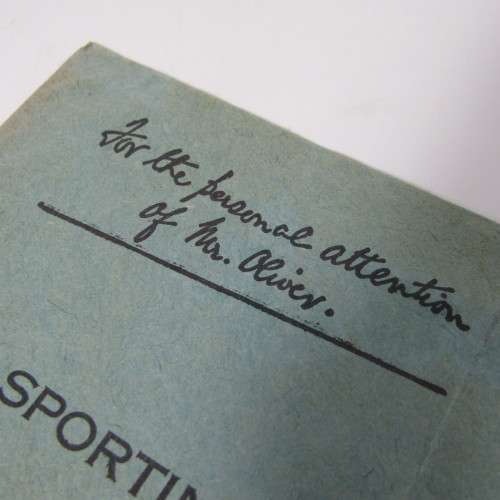 For the personal attention
of Mr. Oliver.
SPORTIN